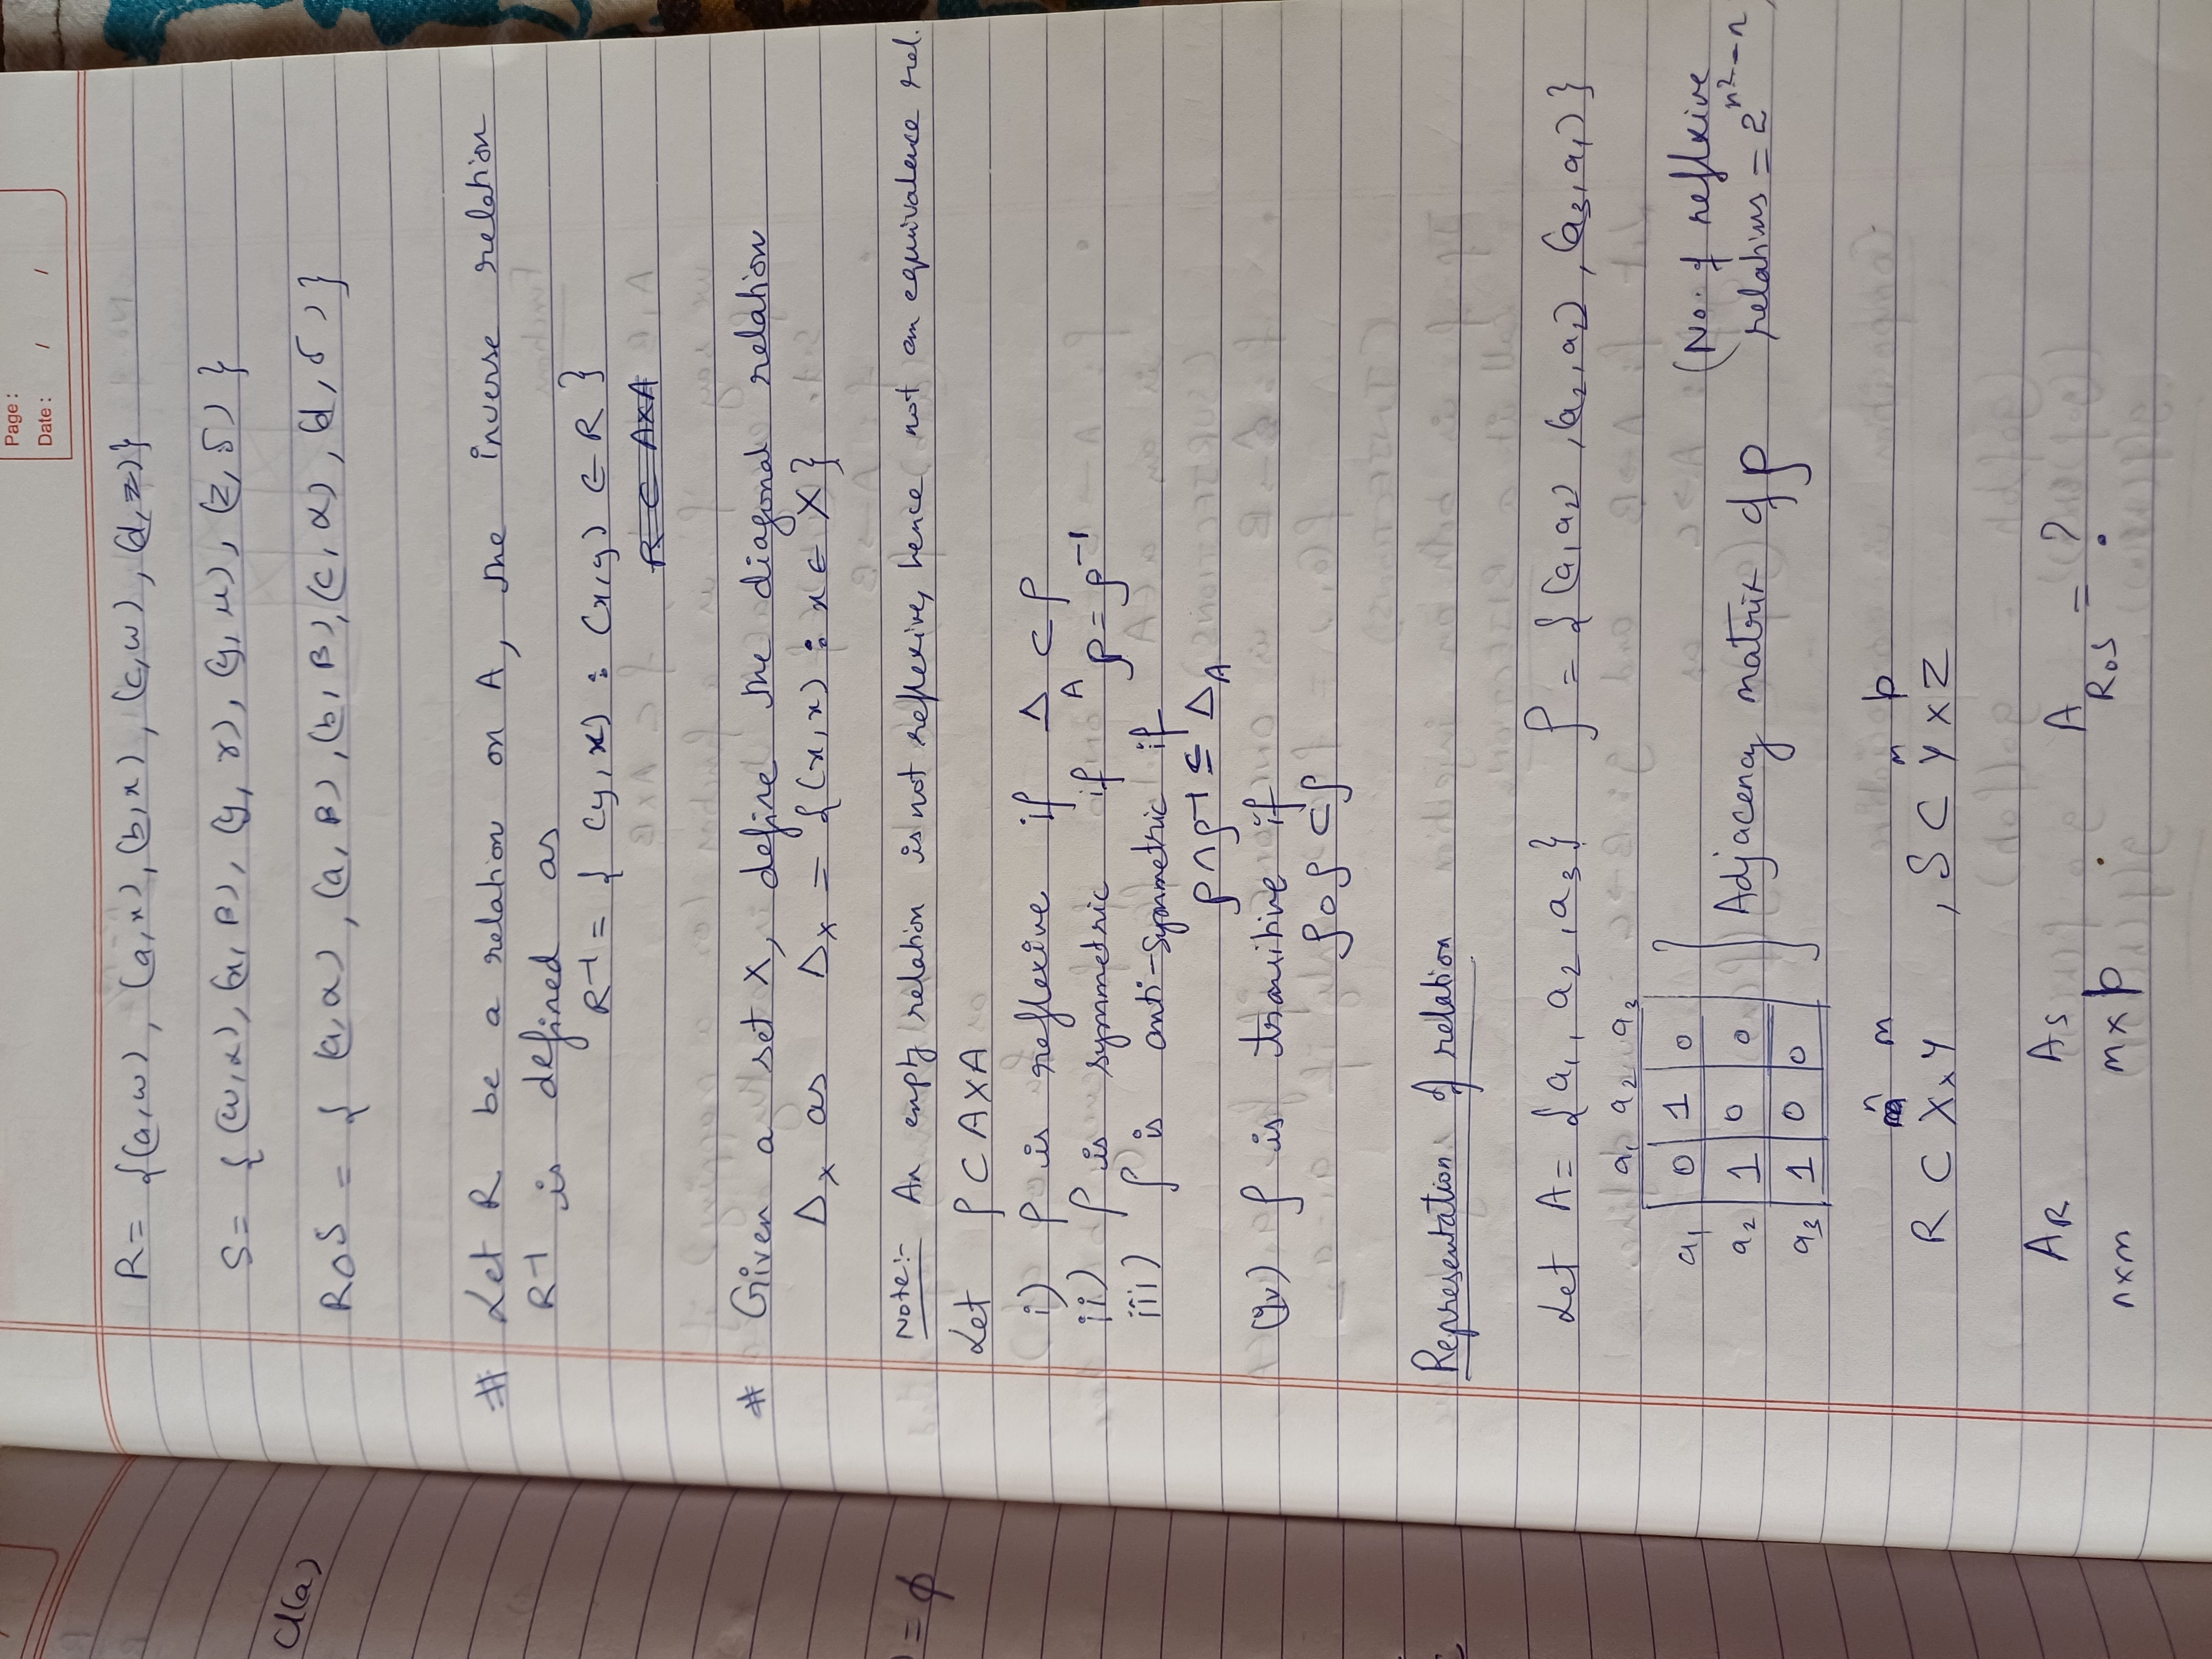 Page :
Date : / /
R = {(a,w), (a,x), (b,x), (c,w), (d,z)}
S = {(w,α), (x,β), (y,γ), (y,μ), (z,δ)}
ROS = { (a,α), (a,β), (b,β), (c,α), (d,δ)}
# Let R be a relation on A, the inverse relation
R-1 is defined as
R-1 = { (y,x) : (x,y) ∈ R }
R ⊂ A×A
# Given a set X, define the diagonal relation
Δx as Δx = {(x,x) : x ∈ X}
Note:- An empty relation is not reflexive, hence not an equivalence rel.
Let ρ ⊂ A×A
i) ρ is reflexive if Δ_A ⊂ ρ
ii) ρ is symmetric if ρ = ρ⁻¹
iii) ρ is anti-symmetric if
ρ ∩ ρ-1 ⊆ Δ_A
(iv) ρ is transitive if
ρ o ρ ⊂ ρ
Representation of relation
Let A = {a₁, a₂, a₃} ρ = {(a₁,a₂), (a₂,a₁), (a₃,a₁)}
a₁ a₂ a₃
a₁ 0 1 0 (No. of reflexive
a₂ 1 0 0 Adjacency matrix of ρ relations = 2^n²-n)
a₃ 1 0 0
n m m p
R ⊂ X×Y , S ⊂ Y×Z
A_R A_S A_RoS = ?
n×m m×p
Cl(a)
= φ